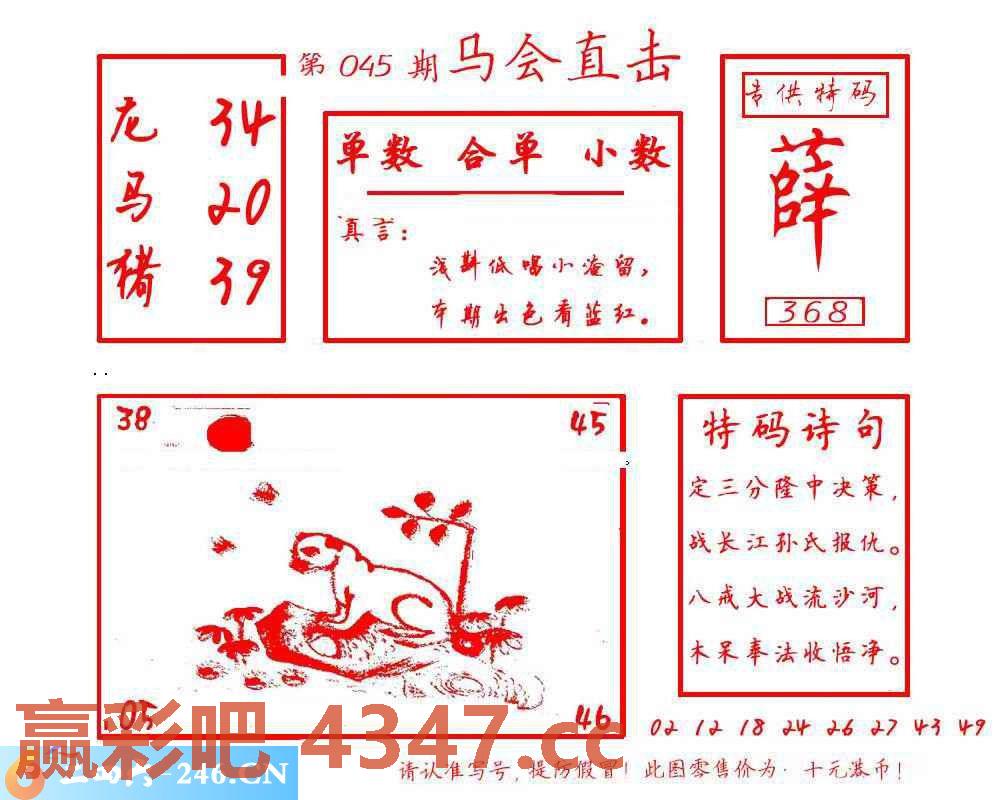 第 045 期 马会直击
龙 34
马 20
猪 39
单数 合单 小数
真言：
浅斟低唱小淹留，
本期出色看蓝红。
专供特码
薛
368
38
45
05
46
特码诗句
定三分隆中决策，
战长江孙氏报仇。
八戒大战流沙河，
木呆奉法收悟净。
02 12 18 24 26 27 43 49
赢彩吧 4347.cc
-246.CN
请认准写号，提防假冒！此图零售价为：十元港币！